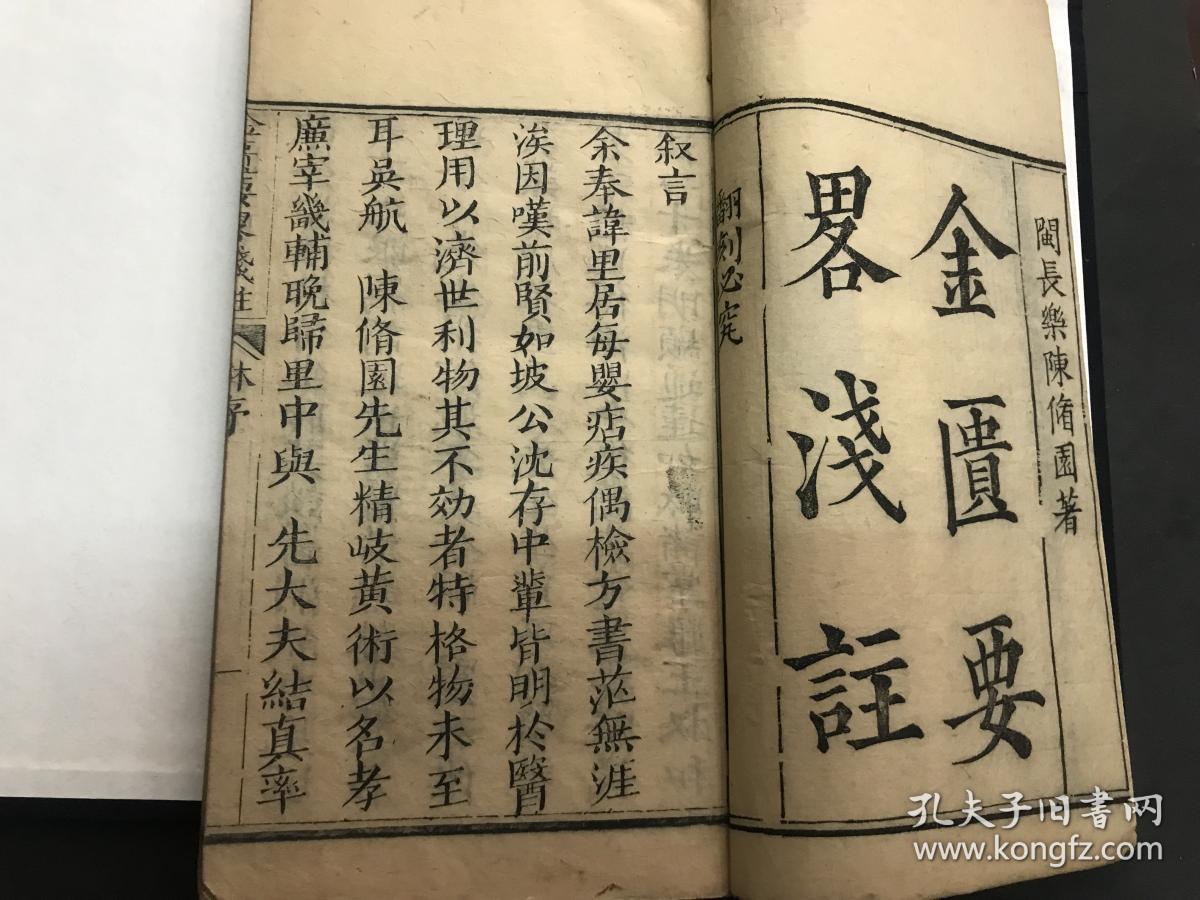 閩長樂陳脩園著
金匱要
畧淺註
翻刻必究
叙言
余奉諱里居每嬰痁疾偶檢方書茫無涯
涘因嘆前賢如坡公沈存中輩皆明於醫
理用以濟世利物其不効者特格物未至
耳吳航 陳脩園先生精岐黃術以名孝
廉宰畿輔晚歸里中與 先大夫結真率
金匱要畧淺註 林序
一
孔夫子旧书网
www.kongfz.com